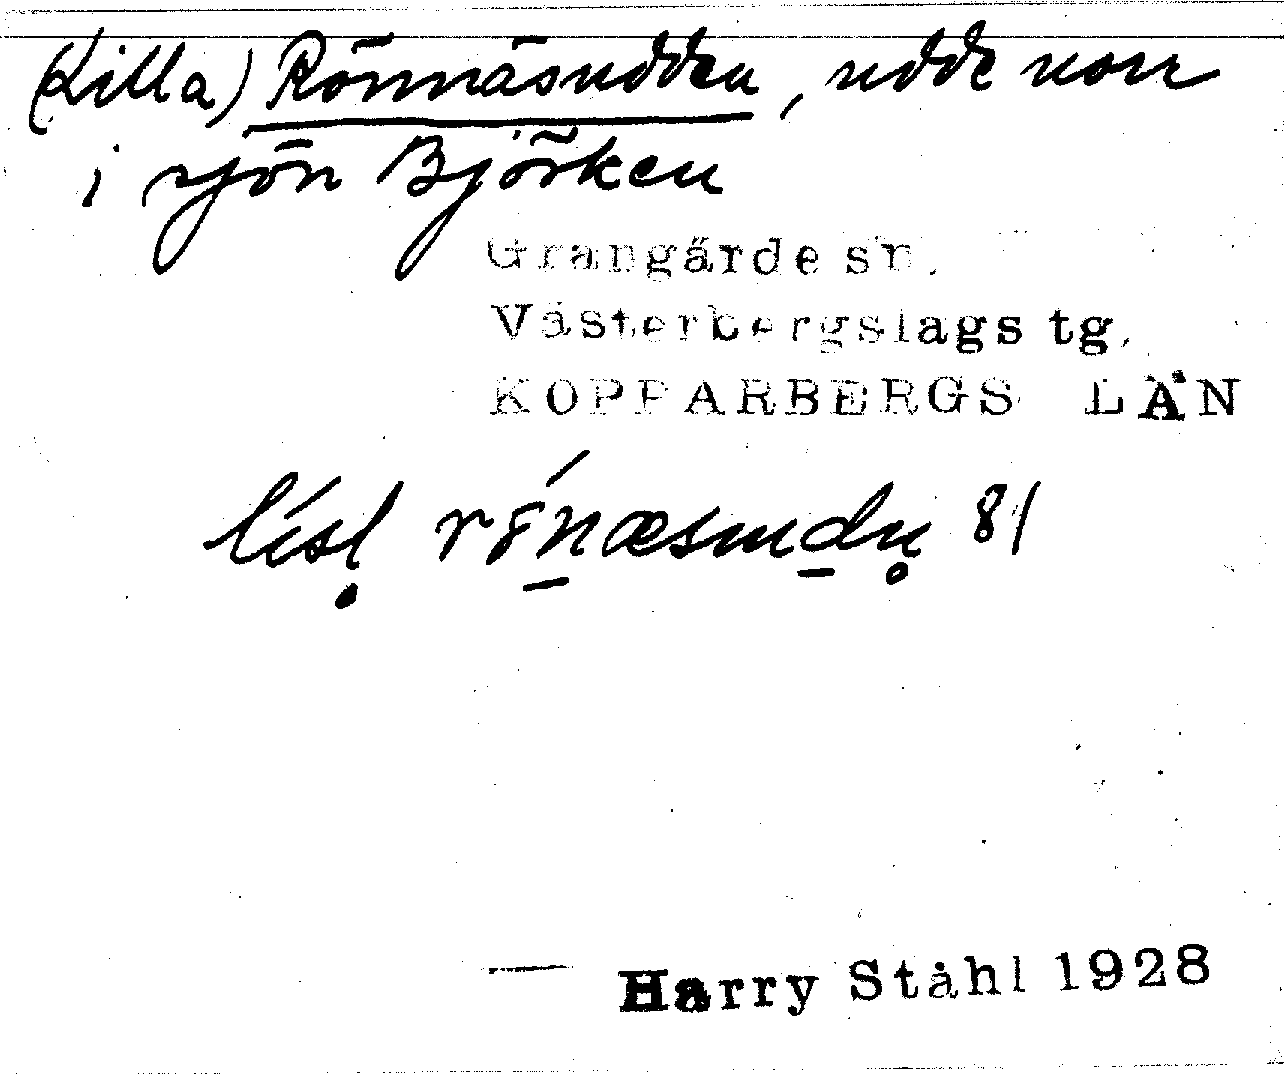 (Lilla) Rönnäsudden, udde norr
i sjön Björken
Grangärde sn.
Västerbergslags tg.
KOPPARBERGS LÄN
81
Harry Ståhl 1928